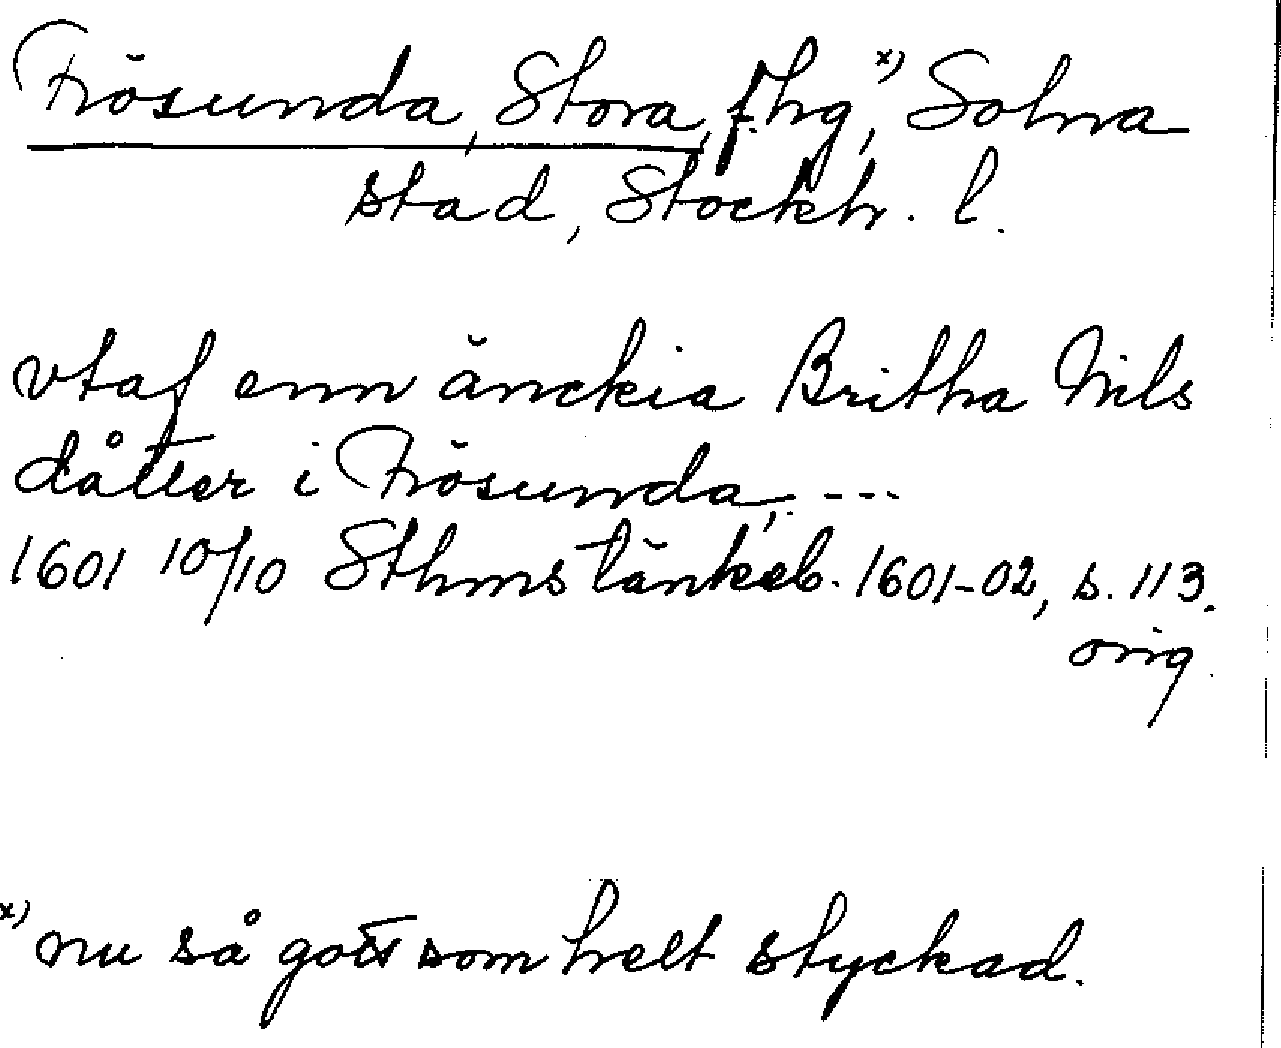 Frösunda, Stora, f. hg,ˣ⁾ Solna
stad, Stockh. l.
vtaf enn änckia Britha Nils
dåtter i Frösunda, ---
1601 10/10 Sthms tänkeb. 1601-02, s. 113.
orig.
x) nu så gott som helt styckad.